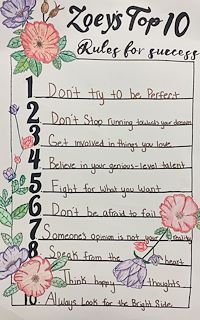 Zoey's Top 10
Rules for success
1 Don't try to be Perfect
2 Don't Stop running towards your dreams
3 Get involved in things you love
4 Believe in your genious-level talent
5 Fight for what you want
6 Don't be afraid to fail
7 Someone's opinion is not your reality
8 Speak from the heart
9 Think happy thoughts
10 Always Look for the Bright Side